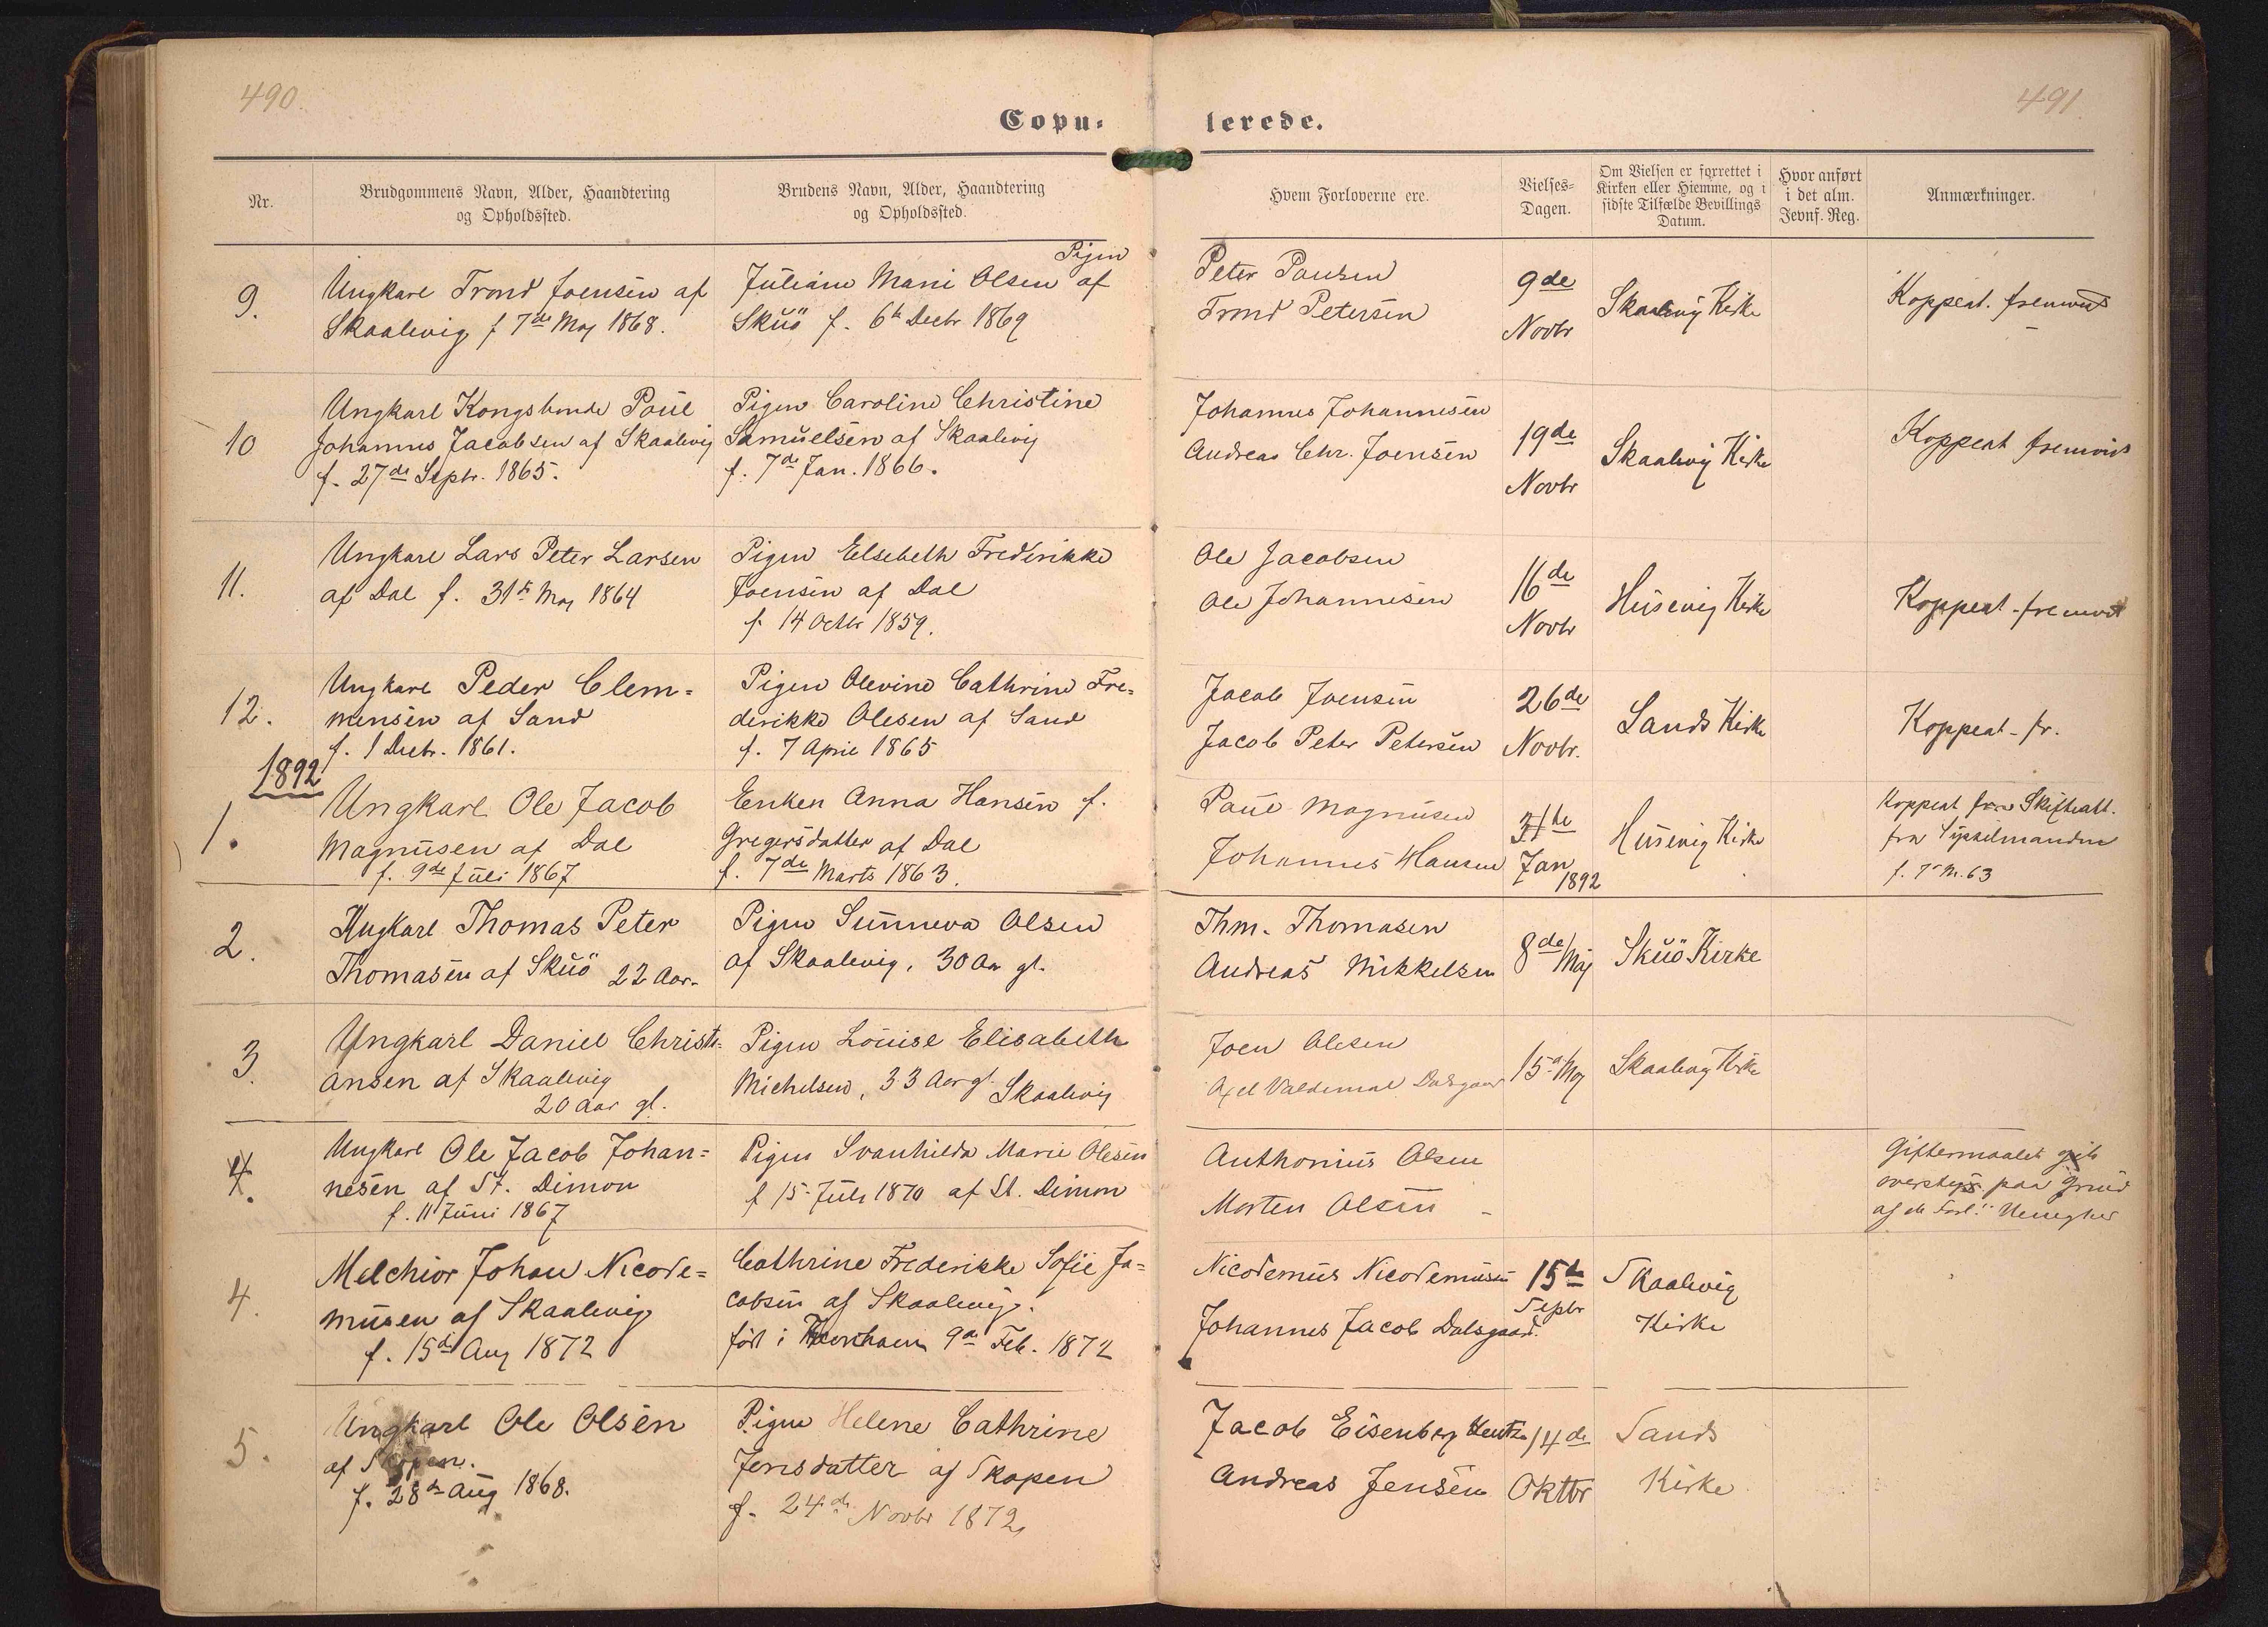 490.
491
Copu-
lerede.
Nr.
Brudgommens Navn, Alder, Haandtering
og Opholdssted.
Brudens Navn, Alder, Haandtering
og Opholdssted.
Hvem Forloverne ere.
Vielses-
Dagen.
Om Vielsen er forrettet i
Kirken eller Hiemme, og i
sidste Tilfælde Bevillings
Datum.
Hvor anført
i det alm.
Jevnf. Reg.
Anmærkninger.
9.
Ungkarl Trond Joensen af
Skaalevig f 7de Maj 1868.
Pigen
Juliane Marie Olsen af
Skuö f. 6te Decbr 1869
Peter Poulsen
Trond Petersen
9de
Novbr
Skaalevig Kirke
Koppeat. fremvist
10
Ungkarl Kongsbonde Poul
Johannes Jacobsen af Skaalevig
f. 27de Septr. 1865.
Pigen Caroline Christine
Samuelsen af Skaalevig
f. 7de Jan. 1866.
Johannes Johannesen
Andreas Chr. Joensen
19de
Novbr
Skaalevig Kirke
Koppeat fremvist
11.
Ungkarl Lars Peter Larsen
af Dal f. 31te Maj 1864
Pigen Elsebeth Frederikke
Joensen af Dal
f. 14 Octbr 1859.
Ole Jacobsen
Ole Johannesen
16de
Novbr
Husevig Kirke
Koppeat - fremvist
12.
Ungkarl Peder Clem-
mensen af Sand
f. 1 Decbr. 1861.
Pigen Olevine Cathrine Fre-
derikke Olesen af Sand
f. 7 April 1865
Jacob Joensen
Jacob Peter Petersen
26de
Novbr.
Sands Kirke
Koppeat - fr.
1892
1.
Ungkarl Ole Jacob
Magnusen af Dal
f. 9de Juli 1867
Enken Anna Hansen f.
Gregersdatter af Dal
f. 7de Marts 1863.
Poul Magnusen
Johannes Hansen
31te
Jan
1892
Husevig Kirke
Koppeat Skifteatt.
fra Sysselmanden
f. 7 M. 63
2.
Ungkarl Thomas Peter
Thomasen af Skuö 22 Aar.
Pigen Sunneva Olsen
af Skaalevig, 30 Aar gl.
Thm. Thomasen
Andreas Mikkelsen
8de/Maj
Skuö Kirke
3.
Ungkarl Daniel Christi-
ansen af Skaalevig
20 Aar gl.
Pigen Louise Elisabeth
Michelsen, 33 Aar gl. Skaalevig
Joen Olesen
Axel Valdemar Dalsgaard
15d/Maj
Skaalevig Kirke
4.
Ungkarl Ole Jacob Johan-
nesen af St. Dimon
f. 11 Juni 1867
Pigen Svanhilda Marie Olesen
f 15. Juli 1870 af St. Dimon
Anthonius Olsen
Morten Olsen
Giftermaalet gik
overstyr paa Grund
af de
4.
Melchior Johan Nicode-
musen af Skaalevig
f. 15de Aug 1872
Cathrine Frederikke Sofie Ja-
cobsen af Skaalevig.
født i Thorshavn 9de Feb. 1872
Nicodemus Nicodemusen
Johannes Jacob Dalsgaard.
15de
Septr
Skaalevig
Kirke
5.
Ungkarl Ole Olsen
af Skopen.
f. 28de Aug 1868.
Pigen Helene Cathrine
Jensdatter af Skopen
f. 24de Novbr 1872
Jacob Eisenberg Hentze
Andreas Jensen
14de
Oktbr
Sands
Kirke